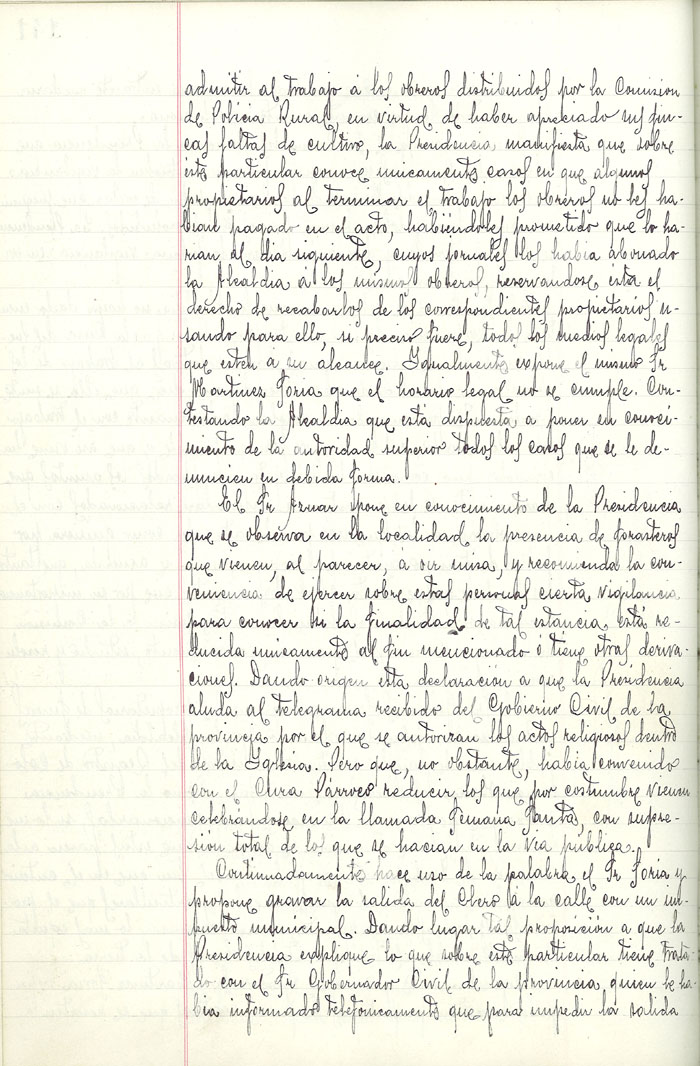 admitir al trabajo á los obreros distribuidos por la Comision
de Policia Rural, en virtud de haber apreciado sus fin-
cas faltas de cultivo, la Presidencia manifiesta que sobre
este particular conoce unicamente casos en que algunos
propietarios al terminar el trabajo los obreros no les ha-
bian pagado en el acto, habiéndoles prometido que lo ha-
rian al dia siguiente, cuyos jornales los habia abonado
la Alcaldia á los mismos obreros, reservandose esta el
derecho de recabarlos de los correspondientes propietarios u-
sando para ello, si preciso fuere, todos los medios legales
que esten a su alcance. Igualmente expone el mismo Sr
Martinez Soria que el horario legal no se cumple. Con-
testando la Alcaldia que esta dispuesta a poner en conoci-
miento de la autoridad superior todos los casos que se le de-
nuncien en debida forma.
El Sr Aznar pone en conocimiento de la Presidencia
que se observa en la localidad la presencia de forasteros
que vienen, al parecer, á oir misa, y recomienda la con-
veniencia de ejercer sobre estas personas cierta vigilancia
para conocer si la finalidad de tal estancia está re-
ducida unicamente al fin mencionado ó tiene otras deriva-
ciones. Dando origen esta declaracion a que la Presidencia
aluda al telegrama recibido del Gobierno Civil de la
provincia por el que se autorizan los actos religiosos dentro
de la Yglesia. Pero que, no obstante, habia convenido
con el Cura Párroco reducir los que por costumbre vienen
celebrándose en la llamada Semana Santa, con supre-
sion total de los que se hacian en la via publica.
Continuadamente hace uso de la palabra el Sr Soria y
propone gravar la salida del Clero á la calle con un im-
puesto municipal. Dando lugar tal proposición a que la
Presidencia explique lo que sobre este particular tiene trata-
do con el Sr Gobernador Civil de la provincia, quien le ha-
bia informado telefonicamente que para impedir la salida